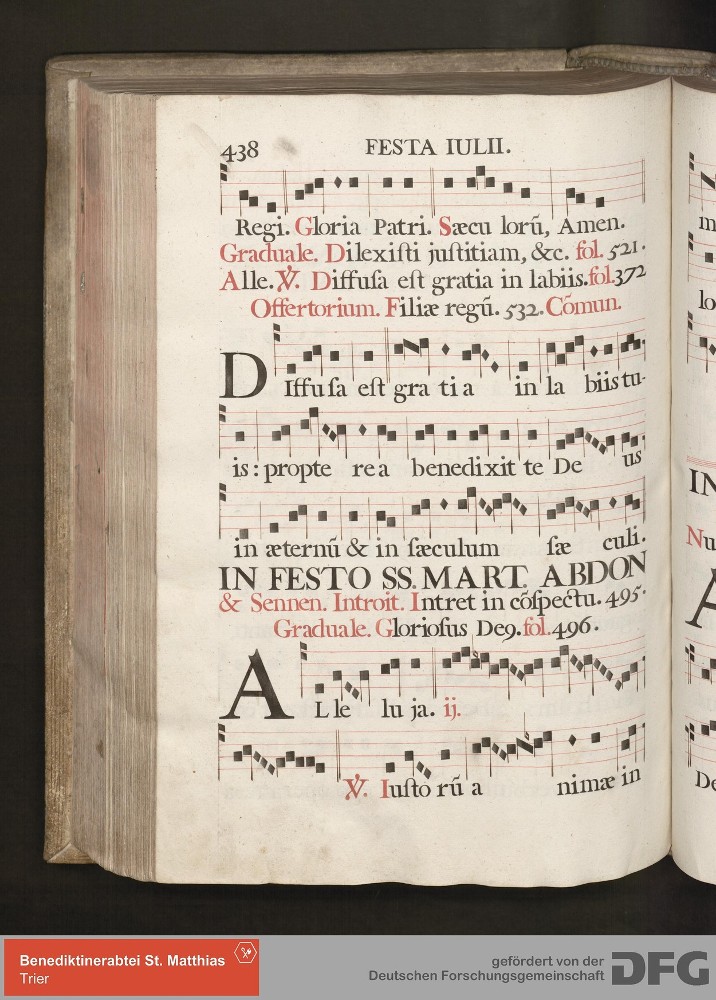 438 FESTA IULII.
Regi. Gloria Patri. Sæcu lorũ, Amen.
Graduale. Dilexiſti juſtitiam, &c. fol. 521.
Alle. ℣. Diffuſa eſt gratia in labiis. fol. 372
Offertorium. Filiæ regũ. 532. Cõmun.
DIffuſa eſt gra ti a in la biis tu-
is: propte rea benedixit te De us
in æternũ & in ſæculum ſæ culi.
IN FESTO SS. MART. ABDON
& Sennen. Introit. Intret in cõſpectu. 495.
Graduale. Glorioſus De9. fol. 496.
ALle lu ja. ij.
℣. Iuſto rũ a nimæ in
m
lo
IN
Nu
A
De
Benediktinerabtei St. Matthias
Trier
gefördert von der
Deutschen Forschungsgemeinschaft DFG